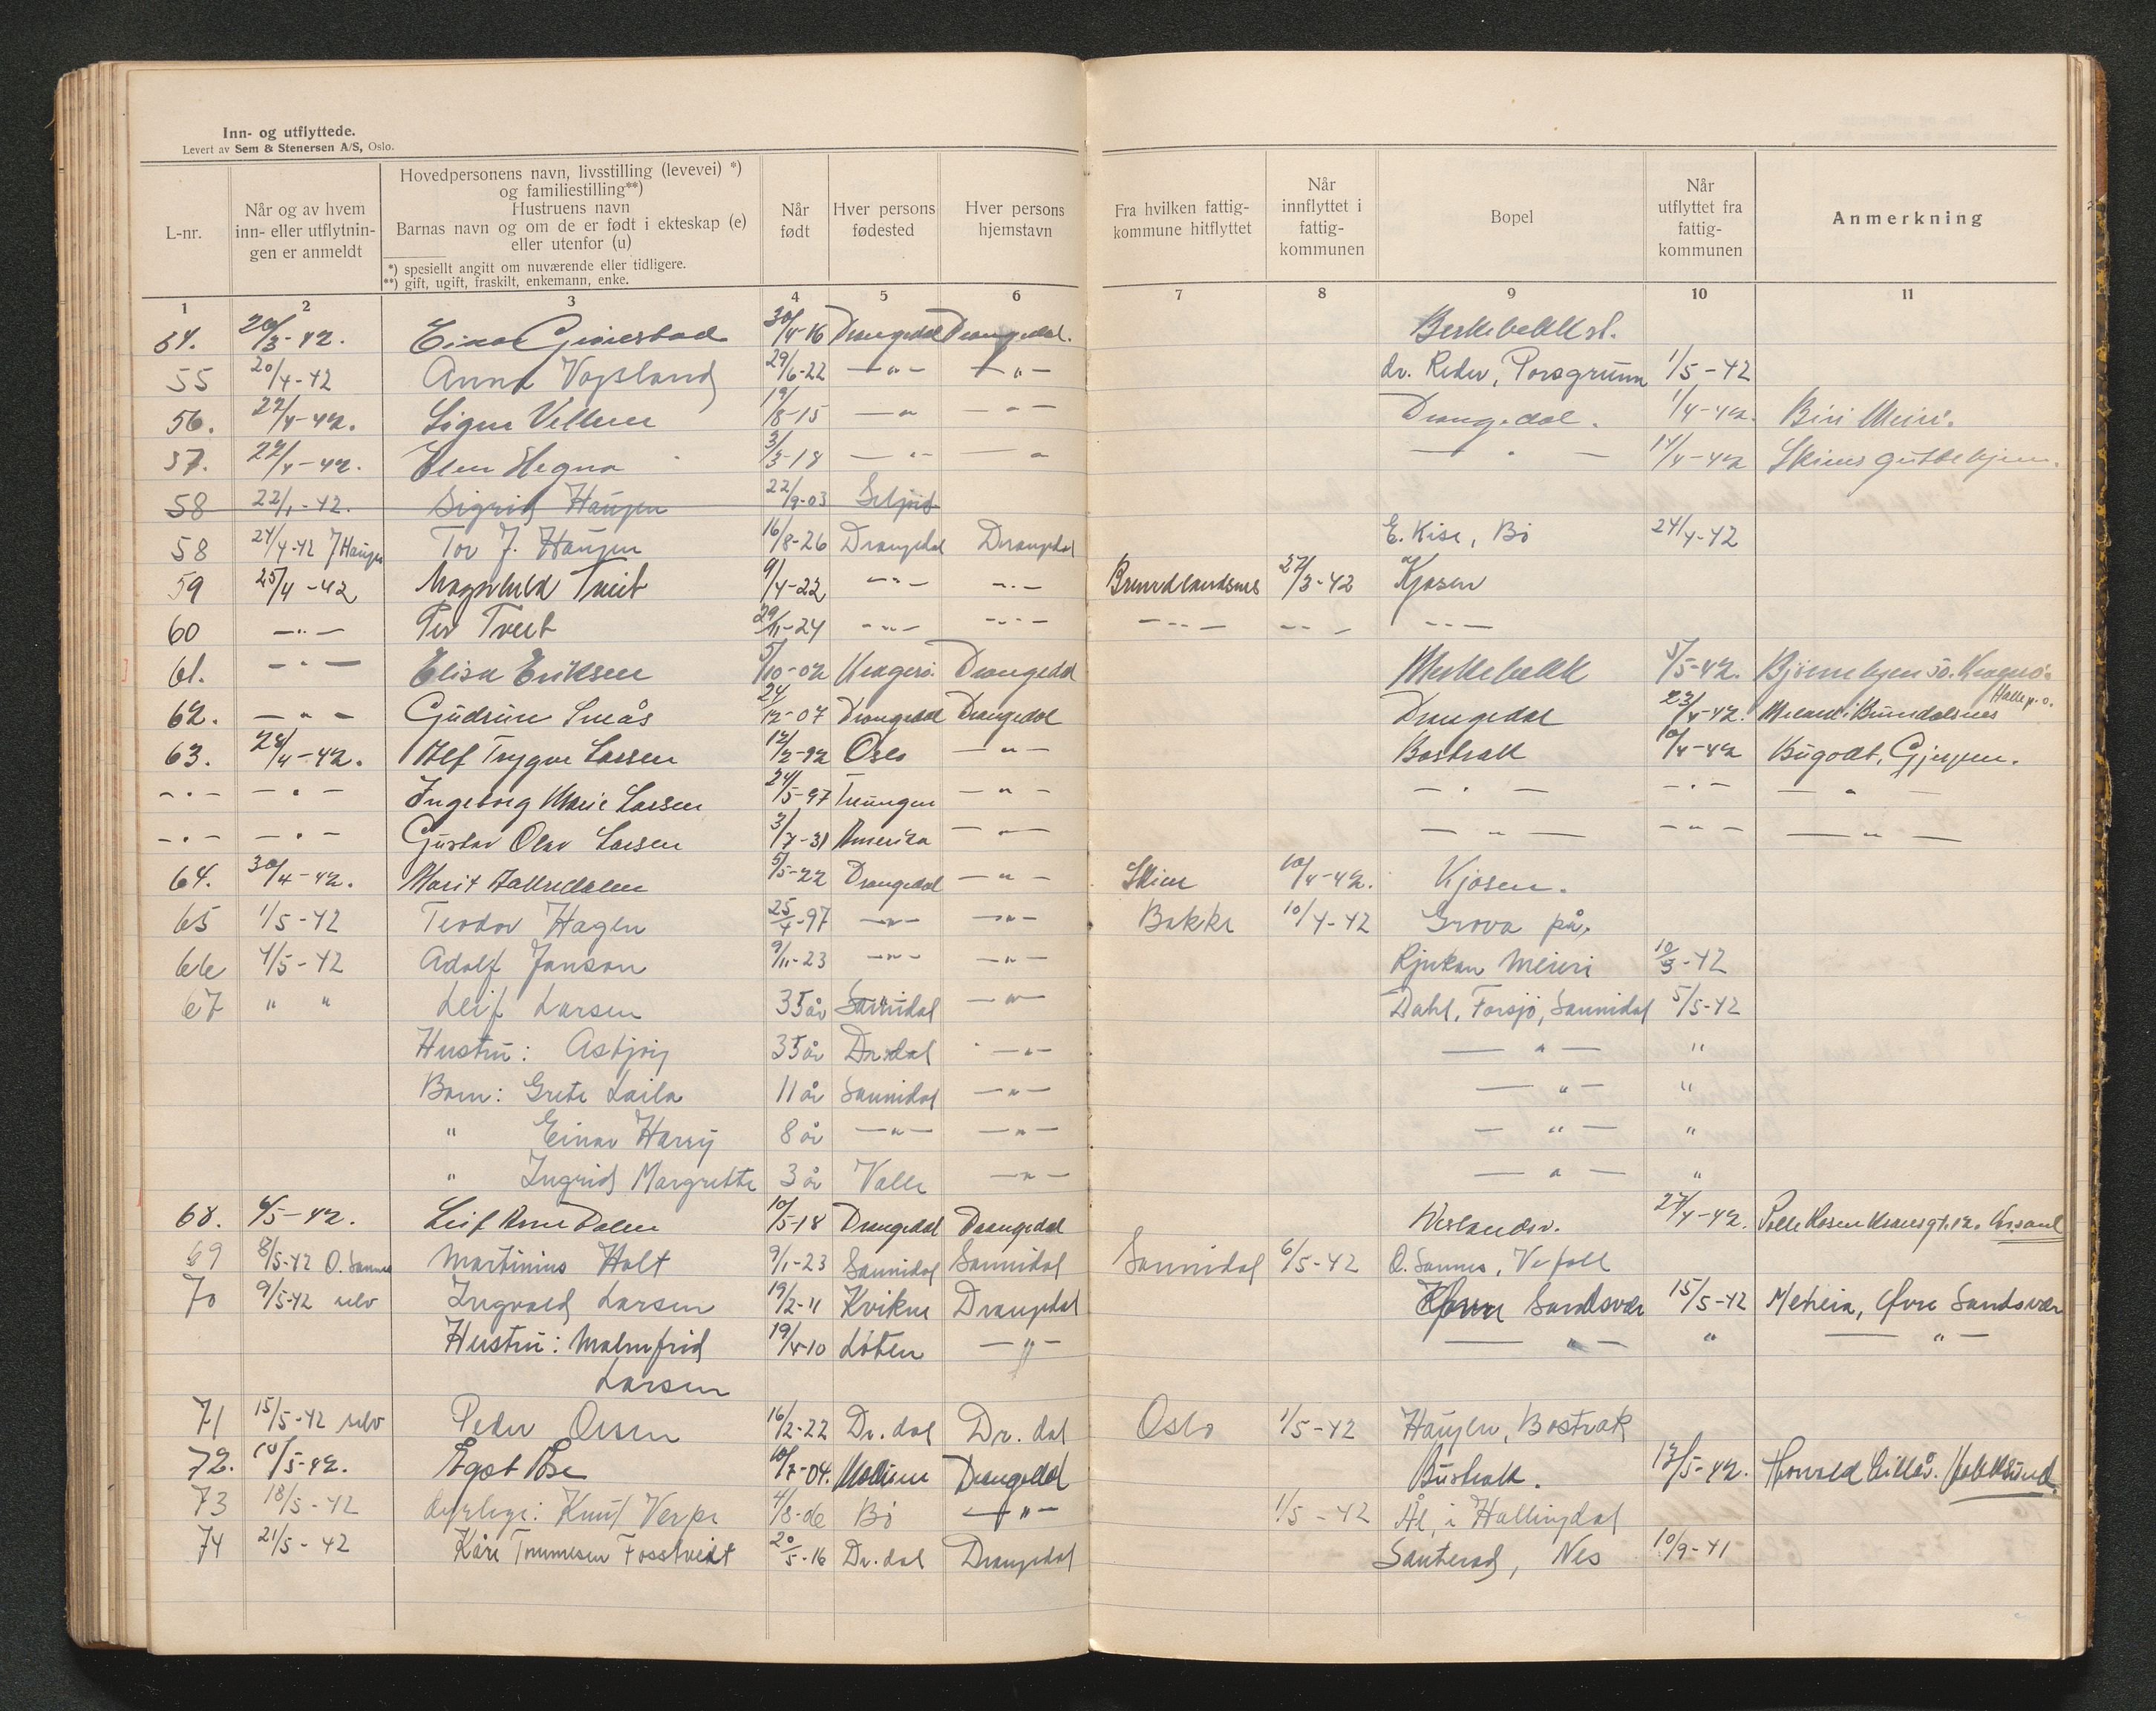 Inn- og utflyttede.
Levert av Sem & Stenersen A/S, Oslo.
L-nr.
Når og av hvem inn- eller utflytnin- gen er anmeldt
Hovedpersonens navn, livsstilling (levevei) *) og familiestilling**) Hustruens navn Barnas navn og om de er født i ekteskap (e) eller utenfor (u)
*) spesiellt angitt om nuværende eller tidligere.
**) gift, ugift, fraskilt, enkemann, enke.
Når født
Hver persons fødested
Hver persons hjemstavn
Fra hvilken fattig- kommune hitflyttet
Når innflyttet i fattig- kommunen
Bopel
Når utflyttet fra fattig- kommunen
Anmerkning
1 2 3 4 5 6 7 8 9 10 11
54. 20/3-42. 30/4-16 Drangedal Drangedal.
55 20/4-42 Anna Vogsland 29/6-22 -"- -"- dr. Reder, Porsgrunn 1/5-42
56. 22/4-42. Vellene 19/8-15 -"- -"- Drangedal. 1/4-42. Biri Meieri.
57. 22/4-42. Elen Hegna 3/3-18 -"- -"- -"- 14/4-42 Skiens guttehjem.
58 22/1-42. Sigrid Haugen 22/9-03 Seljord
58 24/4-42 J Haugen Tor J. Haugen 16/8-26 Drangedal Drangedal E. Kise, Bø 24/4-42
59 25/4-42 Magnhild Tveit 9/4-22 -"- -"- 27/3-42 Kjosen
60 -"- Per Tveit 29/11-24 -"- -"- -"- -"- -"-
61. -"- Elisa Eriksen 5/10-02 Kragerø. Drangedal Merkebekk 5/5-42. Kragerø.
62. -"- Gudrun Smås 24/12-07 Drangedal Drangedal Drangedal 23/4-42. Halle p.o.
63. 28/4-42. Alf Trygve Larsen 12/2-92 Oslo -"- Bostrak 10/4-42 Gjerpen.
-"- -"- Ingeborg Marie Larsen 24/5-97 Treungen -"- -"- -"- -"-
-"- -"- Gustav Olav Larsen 3/7-31 Amerika -"- -"- -"- -"-
64. 30/4-42. Marit 5/5-22 Drangedal -"- Skien 10/4-42. Kjosen.
65 1/5-42 Teodor Hagen 25/4-97 -"- -"- Bakke 10/4-42 Grova på.
66 4/5-42 Adolf Janson 9/11-23 -"- -"- Rjukan Meieri 10/3-42
67 " " Leif Larsen 35 år Sannidal -"- Dahl, Farsjø, Sannidal 5/5-42
Hustru: Asbjørg 35 år Dr.dal -"- -"- "
Barn: Grete Laila 11 år Sannidal -"- -"- "
" Einar Harry 8 år -"- -"- -"- "
" Ingrid Margrethe 3 år Valle -"- -"- "
68. 6/5-42. Leif Arne Dalen 10/5-18 Drangedal Drangedal 27/4-42.
69 8/5-42 O. Sannes Martinius Holt 9/1-23 Sannidal Sannidal Sannidal 6/5-42 O. Sannes, Vefall
70 9/5-42 selv Ingvald Larsen 19/2-11 Kvikne Drangedal Sandsvær 15/5-42 Meheia, Øvre Sandsvær
Hustru: Malmfrid 19/4-10 Løten -"- -"- " -"-
Larsen
71 15/5-42 selv Peder Olsen 16/2-22 Dr.dal Dr.dal Oslo 1/5-42 Haugen, Bostrak
72. 10/5-42. 10/7-04. Drangedal 13/5-42.
73 18/5-42 dyrlege: Knut Verpe 4/8-06 Bø -"- 1/5-42 Ål, i Hallingdal
74 21/5-42 Kåre Tommesen Fosstveit 20/5-16 Dr.dal Drangedal Nes 10/9-41